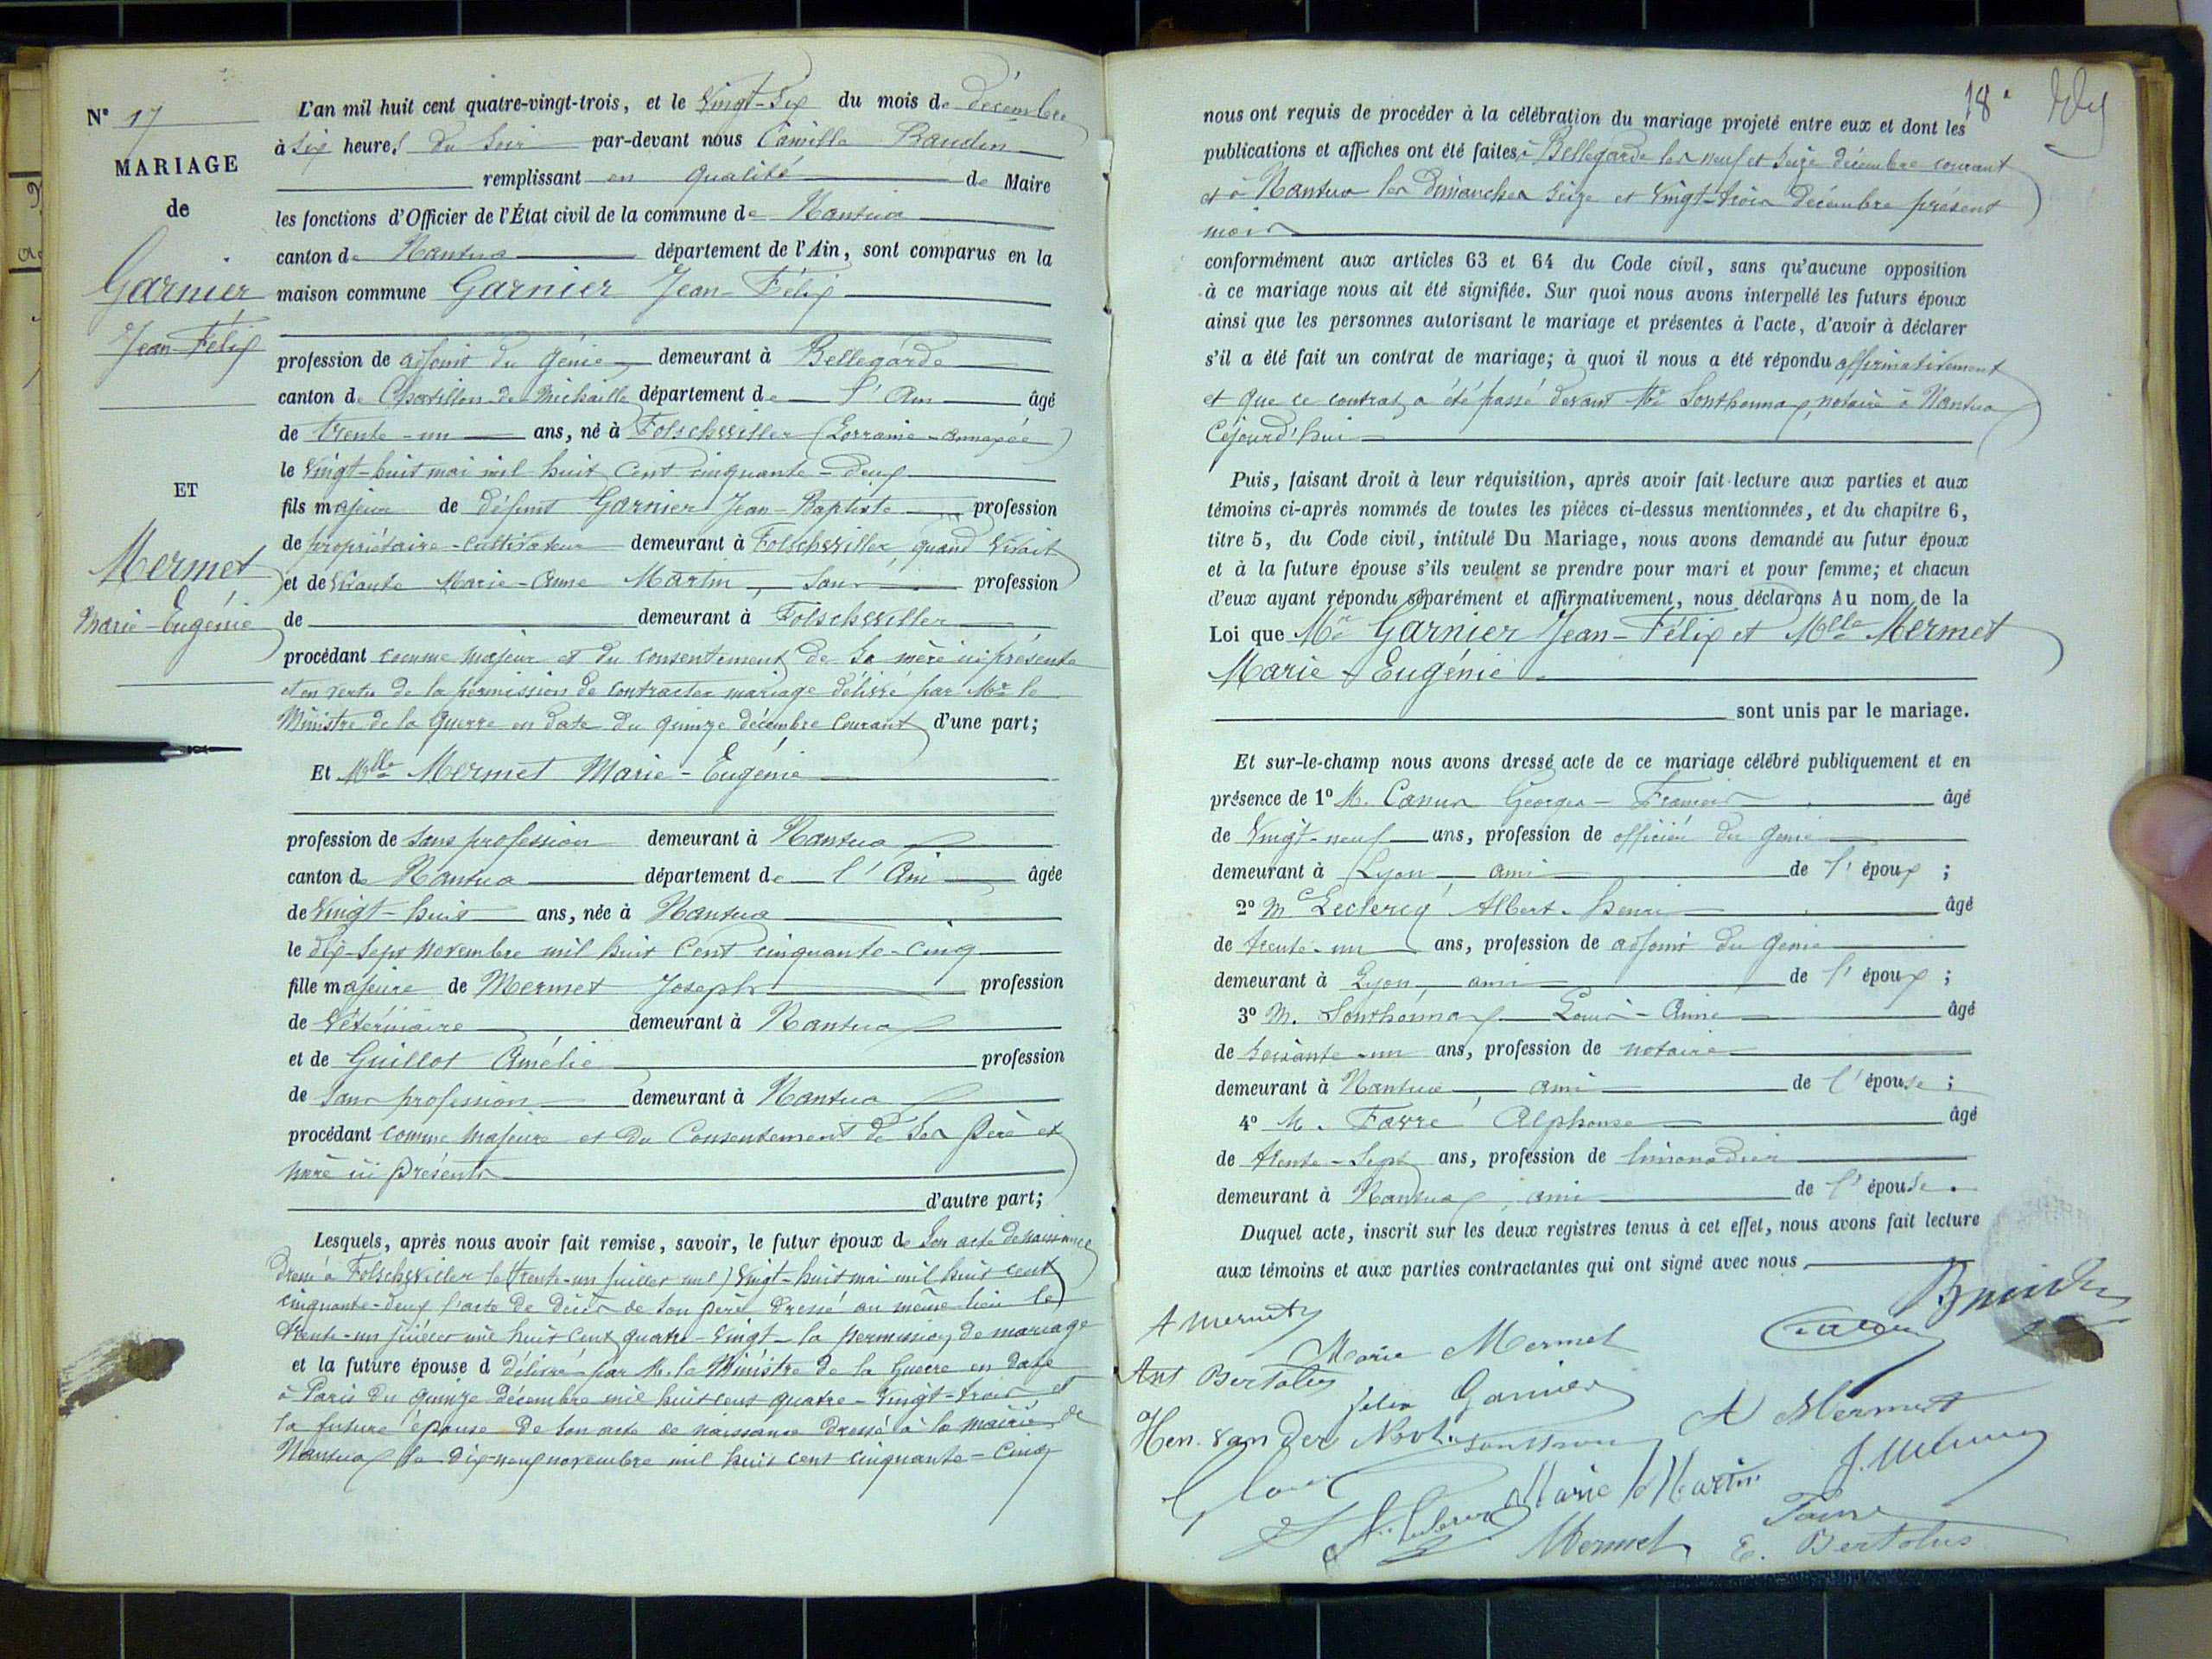 N° 17
MARIAGE
de
Garnier
Jean-Félix
ET
Mermet
Marie-Eugénie
L'an mil huit cent quatre-vingt-trois, et le Vingt-Six du mois de décembre
à Six heures du Soir par-devant nous Camille Baudin
remplissant en qualité de Maire
les fonctions d'Officier de l'État civil de la commune de Nantua
canton de Nantua département de l'Ain, sont comparus en la
maison commune Garnier Jean-Félix
profession de adjoint du Génie demeurant à Bellegarde
canton de Chatillon-de-Michaille département de l'Ain âgé
de trente-un ans, né à Folschwiller (Lorraine-annexée)
le Vingt-huit mai mil huit Cent cinquante-deux
fils majeur de défunt Garnier Jean-Baptiste profession
de propriétaire-cultivateur demeurant à Folschwiller quand vivait
et de vivante Marie-Anne Martin, Sans profession
de demeurant à Folschwiller
procédant comme majeur et du consentement de Sa mère ici présente
et en vertu de la permission de contracter mariage délivré par Mr le
Ministre de la Guerre en date du quinze décembre Courant d'une part;
Et Mlle Mermet Marie-Eugénie
profession de Sans profession demeurant à Nantua
canton de Nantua département de l'Ain âgée
de Vingt-huit ans, née à Nantua
le dix-sept novembre mil huit Cent cinquante-cinq
fille majeure de Mermet Joseph profession
de Vétérinaire demeurant à Nantua
et de Guillot Amélie profession
de Sans profession demeurant à Nantua
procédant comme majeure et du Consentement de Ses Père et
mère ici présents
d'autre part;
Lesquels, après nous avoir fait remise, savoir, le futur époux de Son acte de naissance
dressé à Folschwiller le (trente-un juillet mil) Vingt-huit mai mil huit cent
cinquante-deux l'acte de décès de Son père dressé au même lieu le
trente-un juillet mil huit Cent quatre-Vingt - la permission de mariage
et la future épouse d délivré par M. le Ministre de la Guerre en date
à Paris du quinze décembre mil huit cent quatre-Vingt-trois et
la future épouse de Son acte de naissance dressé à la mairie de
Nantua le dix-neuf novembre mil huit cent cinquante-Cinq
18
nous ont requis de procéder à la célébration du mariage projeté entre eux et dont les
publications et affiches ont été faites à Bellegarde les neuf et Seize décembre courant
et à Nantua les dimanches Seize et Vingt-trois décembre présent
mois
conformément aux articles 63 et 64 du Code civil, sans qu'aucune opposition
à ce mariage nous ait été signifiée. Sur quoi nous avons interpellé les futurs époux
ainsi que les personnes autorisant le mariage et présentes à l'acte, d'avoir à déclarer
s'il a été fait un contrat de mariage; à quoi il nous a été répondu affirmativement
et que ce contrat a été passé devant Me Sonthonnax, notaire à Nantua
Cejourd'hui
Puis, faisant droit à leur réquisition, après avoir fait lecture aux parties et aux
témoins ci-après nommés de toutes les pièces ci-dessus mentionnées, et du chapitre 6,
titre 5, du Code civil, intitulé Du Mariage, nous avons demandé au futur époux
et à la future épouse s'ils veulent se prendre pour mari et pour femme; et chacun
d'eux ayant répondu séparément et affirmativement, nous déclarons Au nom de la
Loi que Mr Garnier Jean-Félix et Mlle Mermet
Marie-Eugénie
sont unis par le mariage.
Et sur-le-champ nous avons dressé acte de ce mariage célébré publiquement et en
présence de 1° M. Camus Georges-François âgé
de Vingt-neuf ans, profession de officier du Génie
demeurant à Lyon ami de l'époux ;
2° M Leclercq Albert-Henri âgé
de trente-un ans, profession de adjoint du Génie
demeurant à Lyon, ami de l'époux ;
3° M. Sonthonnax Louis-Aimé âgé
de soixante-un ans, profession de notaire
demeurant à Nantua, ami de l'épouse ;
4° M. Favre Alphonse âgé
de trente-sept ans, profession de limonadier
demeurant à Nantua, ami de l'épouse.
Duquel acte, inscrit sur les deux registres tenus à cet effet, nous avons fait lecture
aux témoins et aux parties contractantes qui ont signé avec nous.
A Mermet Baudin
Marie Mermet
Ant Bertolus
Félix Garnier
A Mermet
Hen. van der
Marie Martin
Favre
Mermet E. Bertolus